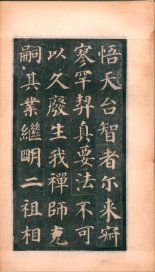 悟天台智者尒来寂
寥罕契真要法不可
以久廢生我禪師克
嗣其業繼明二祖相